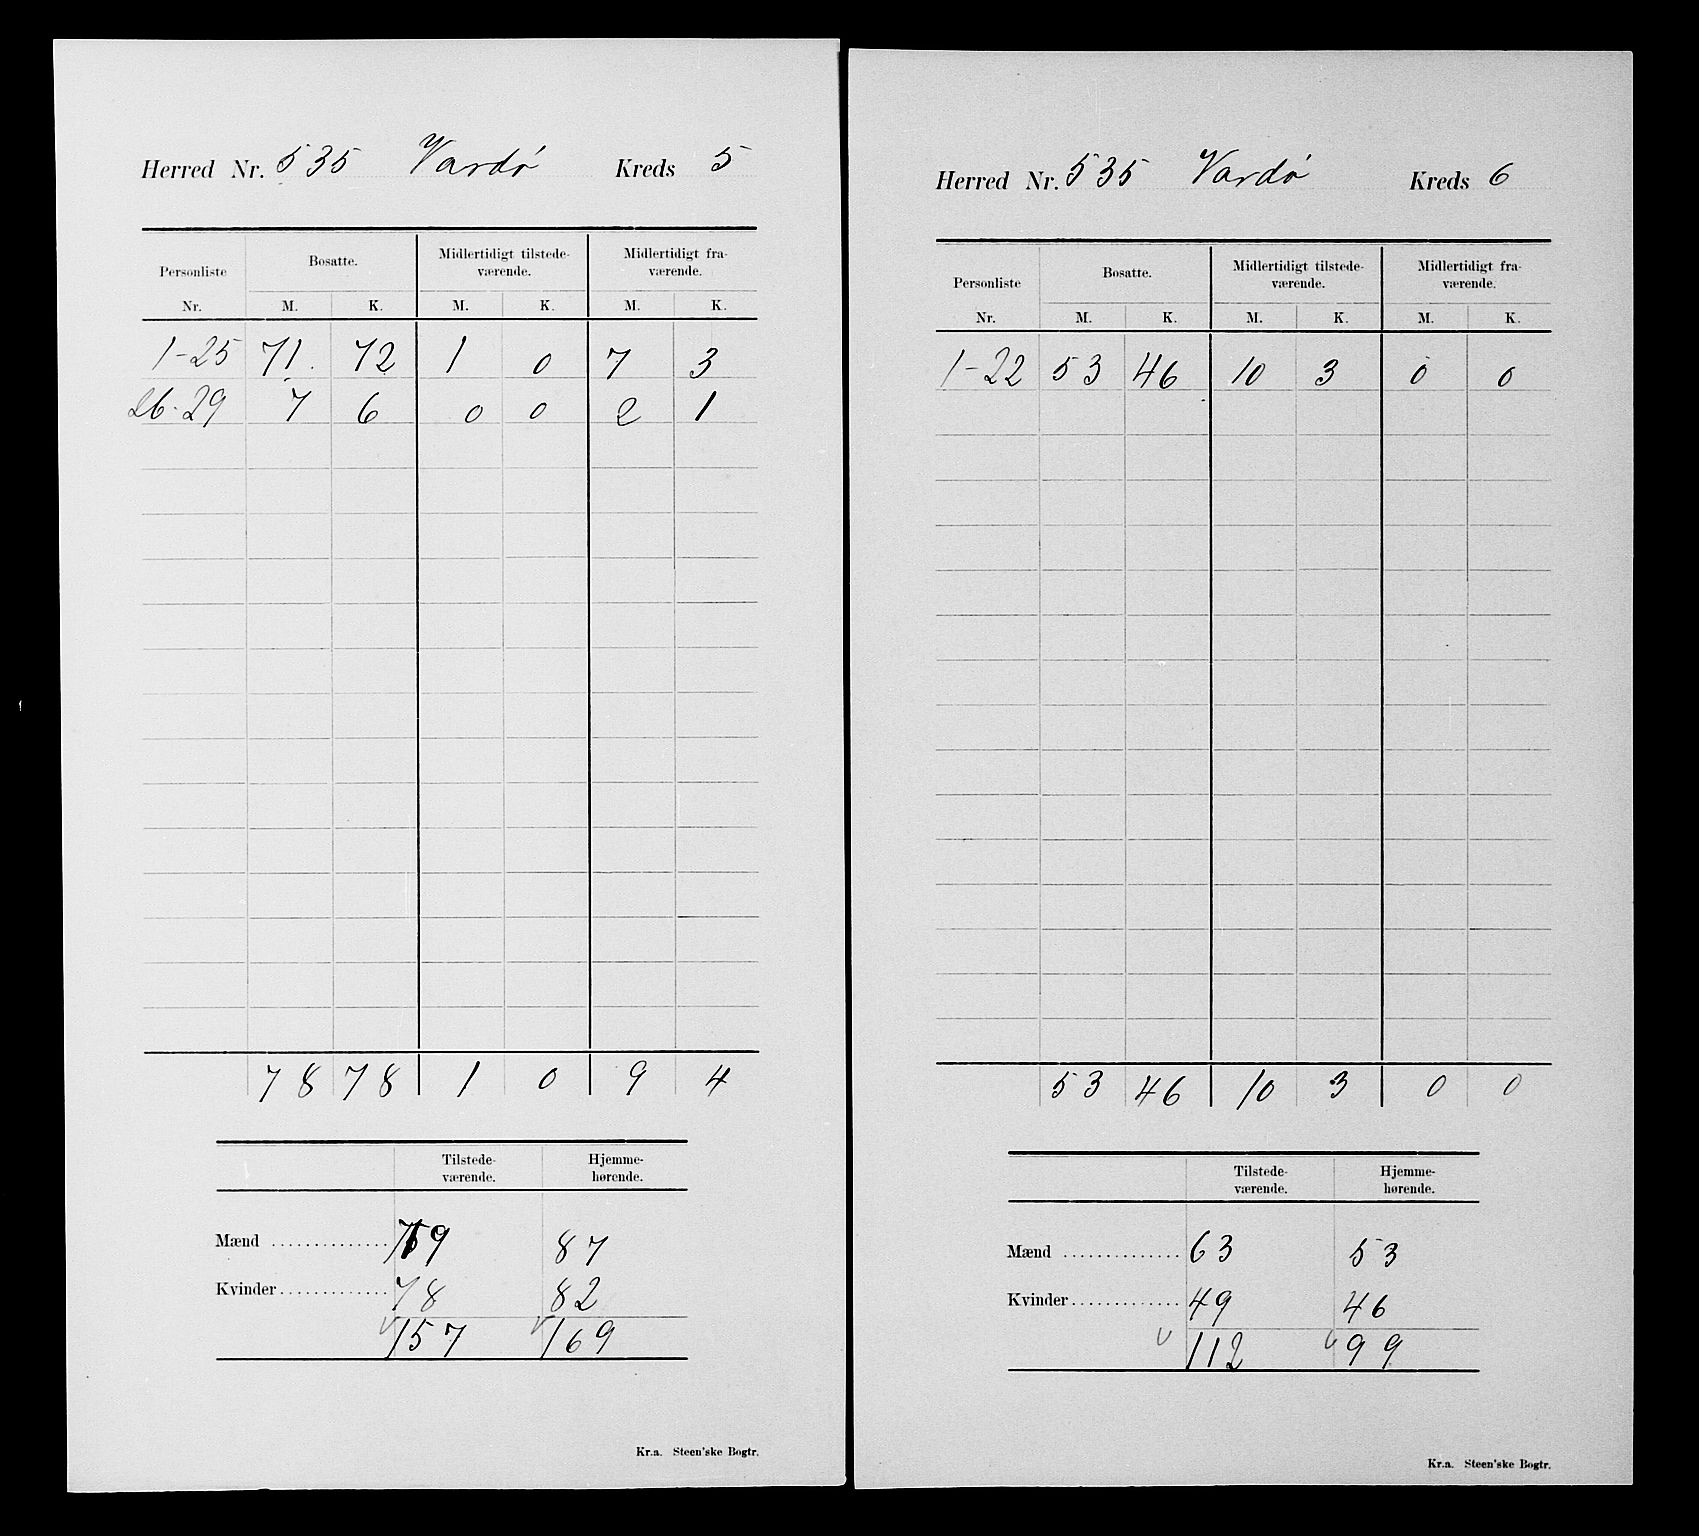 Herred Nr. 535 Vardø Kreds 5
Personliste Bosatte. Midlertidigt tilstede- Midlertidigt fra-
værende. værende.
Nr. M. K. M. K. M. K.
1-25 71. 72 1 0 7 3
26-29 7 6 0 0 2 1
78 78 1 0 9 4
Tilstede- Hjemme-
værende. hørende.
Mænd .............. 79 87
Kvinder ............. 78 82
157 169
Kr.a. Steen'ske Bogtr.
Herred Nr. 535 Vardø Kreds 6
Personliste Bosatte. Midlertidigt tilstede- Midlertidigt fra-
værende. værende.
Nr. M. K. M. K. M. K.
1-22 53 46 10 3 0 0
53 46 10 3 0 0
Tilstede- Hjemme-
værende. hørende.
Mænd .............. 63 53
Kvinder ............. 49 46
112 99
Kr.a. Steen'ske Bogtr.